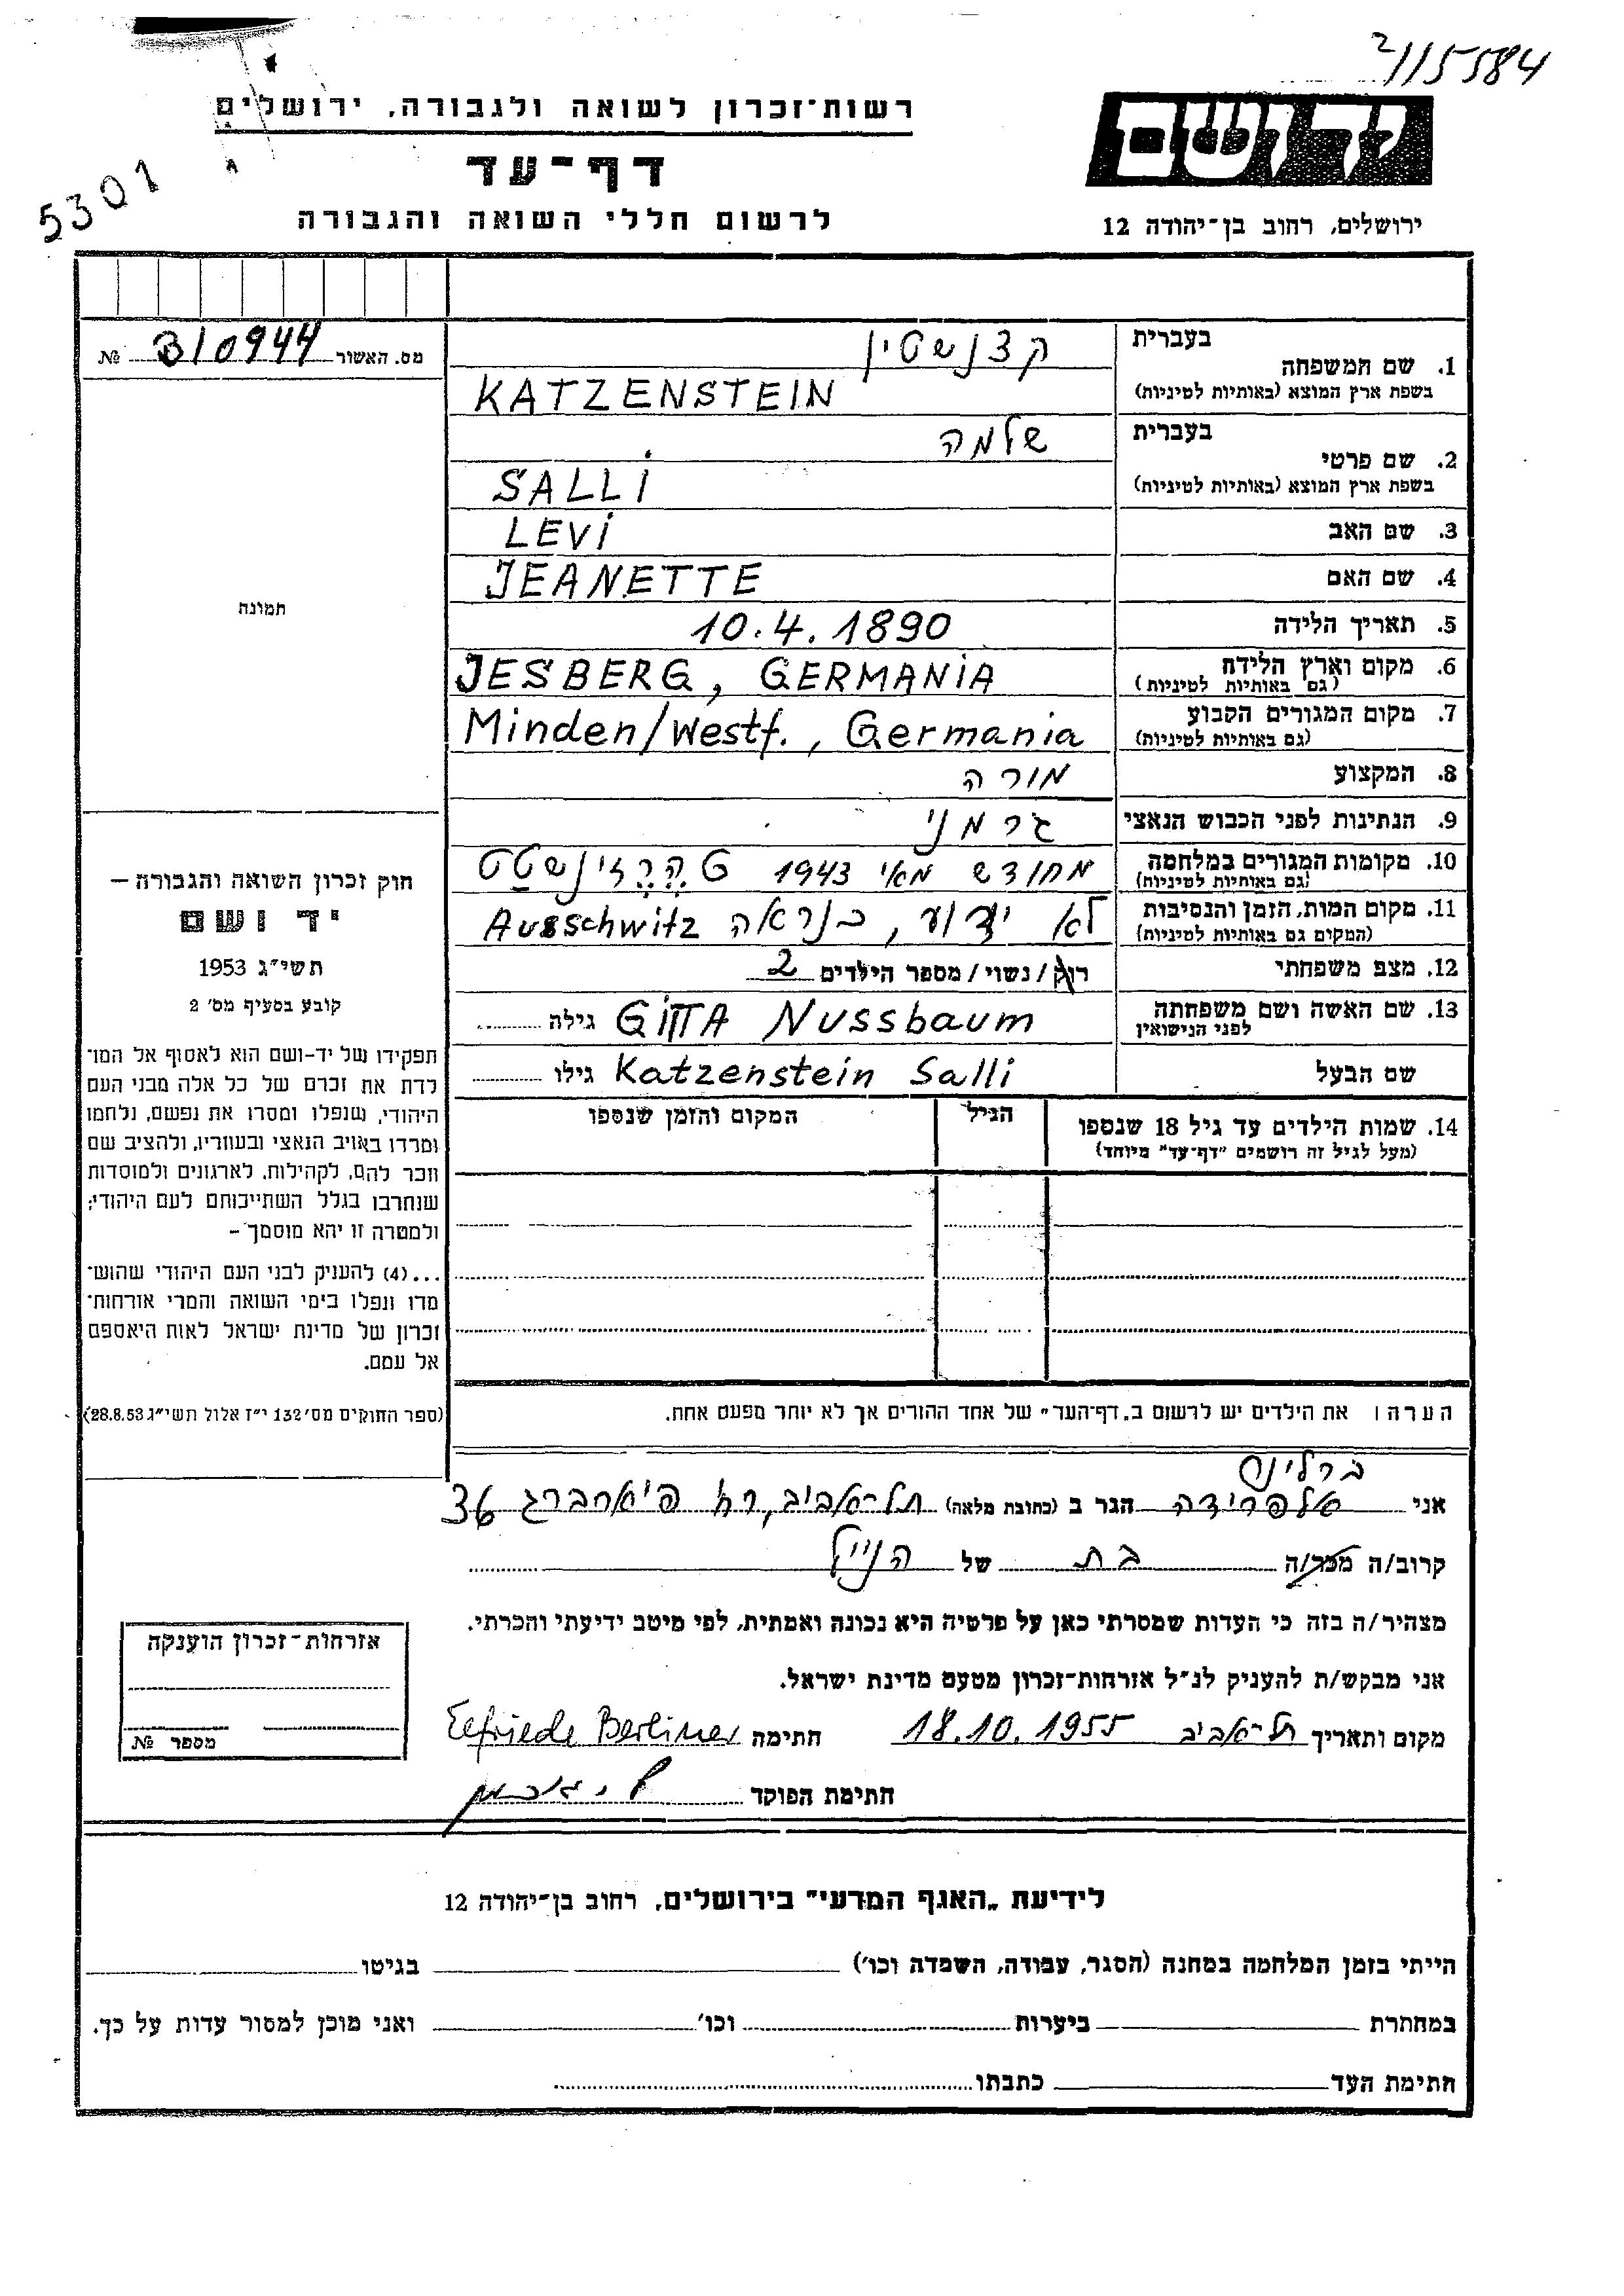 2115584
5301
רשות־זכרון לשואה ולגבורה, ירושלים
דף־עד
לרשום חללי השואה והגבורה
יד ושם
ירושלים, רחוב בן־יהודה 12
מס. האשור B10944 №
תמונה
חוק זכרון השואה והגבורה —
יד ושם
תשי״ג 1953
קובע בסעיף מס׳ 2
תפקידו של יד-ושם הוא לאסוף אל המו־
לדת את זכרם של כל אלה מבני העם
היהודי, שנפלו ומסרו את נפשם, נלחמו
ומרדו באויב הנאצי ובעוזריו, ולהציב שם
וזכר להם, לקהילות, לארגונים ולמוסדות
שנחרבו בגלל השתייכותם לעם היהודי;
ולמטרה זו יהא מוסמך –
...(4) להעניק לבני העם היהודי שהוש־
מדו ונפלו בימי השואה והמרי אזרחות־
זכרון של מדינת ישראל לאות היאספם
אל עמם.
(ספר החוקים מס׳ 132 י״ז אלול תשי״ג 28.8.53)
בעברית קצנשטין
1. שם המשפחה
בשפת ארץ המוצא (באותיות לטיניות) KATZENSTEIN
בעברית שלמה
2. שם פרטי
בשפת ארץ המוצא (באותיות לטיניות) SALLI
3. שם האב LEVI
4. שם האם JEANETTE
5. תאריך הלידה 10.4.1890
6. מקום וארץ הלידה
(גם באותיות לטיניות) JESBERG, GERMANIA
7. מקום המגורים הקבוע
(גם באותיות לטיניות) Minden/Westf., Germania
8. המקצוע מורה
9. הנתינות לפני הכבוש הנאצי גרמני
10. מקומות המגורים במלחמה
(גם באותיות לטיניות) מחודש מאי 1943 טהרזינשטט
11. מקום המות, הזמן והנסיבות
(המקום גם באותיות לטיניות) לא ידוע, כנראה Ausschwitz
12. מצב משפחתי רוק/נשוי/מספר הילדים 2
13. שם האשה ושם משפחתה
לפני הנישואין GITTA Nussbaum גילה
שם הבעל Katzenstein Salli גילו
14. שמות הילדים עד גיל 18 שנספו
(מעל לגיל זה רושמים "דף־עד" מיוחד)
הגיל
המקום והזמן שנספו
הערה: את הילדים יש לרשום ב„דף־העד" של אחד ההורים אך לא יותר מפעם אחת.
ברלינר
אני אלפרידה הגר ב (כתובת מלאה) תל־אביב, רח׳ פיארברג 36
קרוב/ה מכר/ה בת של הנ״ל
מצהיר/ה בזה כי העדות שמסרתי כאן על פרטיה היא נכונה ואמתית, לפי מיטב ידיעתי והכרתי.
אני מבקש/ת להעניק לנ״ל אזרחות־זכרון מטעם מדינת ישראל.
מקום ותאריך תל־אביב 18.10.1955 חתימה Elfriede Berliner
חתימת הפוקד
אזרחות־זכרון הוענקה
מספר №
לידיעת „האגף המדעי" בירושלים, רחוב בן־יהודה 12
הייתי בזמן המלחמה במחנה (הסגר, עבודה, השמדה וכו׳) בגיטו
במחתרת ביערות וכו׳ ואני מוכן למסור עדות על כך.
חתימת העד כתבתו